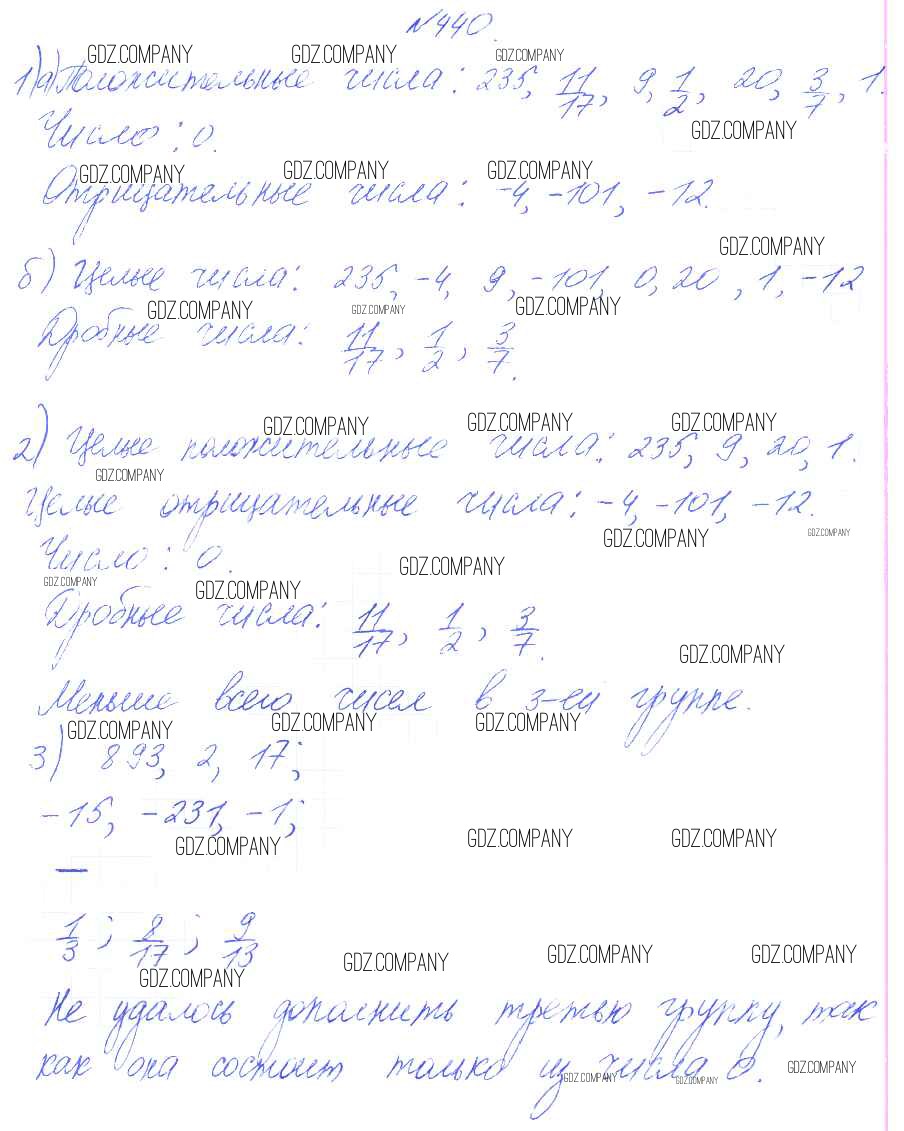 №440.
GDZ.COMPANY GDZ.COMPANY GDZ.COMPANY
1) а) Положительные числа: 235, 11/17, 9, 1/2, 20, 3/7, 1.
Число: 0.
GDZ.COMPANY
GDZ.COMPANY GDZ.COMPANY GDZ.COMPANY
Отрицательные числа: -4, -101, -12.
GDZ.COMPANY
б) Целые числа: 235, -4, 9, -101, 0, 20, 1, -12
GDZ.COMPANY GDZ.COMPANY GDZ.COMPANY
Дробные числа: 11/17, 1/2, 3/7.
GDZ.COMPANY GDZ.COMPANY GDZ.COMPANY
2) Целые положительные числа: 235, 9, 20, 1.
GDZ.COMPANY
Целые отрицательные числа: -4, -101, -12.
GDZ.COMPANY GDZ.COMPANY
Число: 0.
GDZ.COMPANY
GDZ.COMPANY GDZ.COMPANY
Дробные числа: 11/17, 1/2, 3/7.
GDZ.COMPANY
Меньше всего чисел в 3-ей группе.
GDZ.COMPANY GDZ.COMPANY GDZ.COMPANY
3) 893, 2, 17;
-15, -231, -1;
GDZ.COMPANY GDZ.COMPANY GDZ.COMPANY
—
1/3; 8/17; 9/13
GDZ.COMPANY GDZ.COMPANY GDZ.COMPANY
GDZ.COMPANY
Не удалось дополнить третью группу, так
как она состоит только из числа 0.
GDZ.COMPANY GDZ.COMPANY GDZ.COMPANY